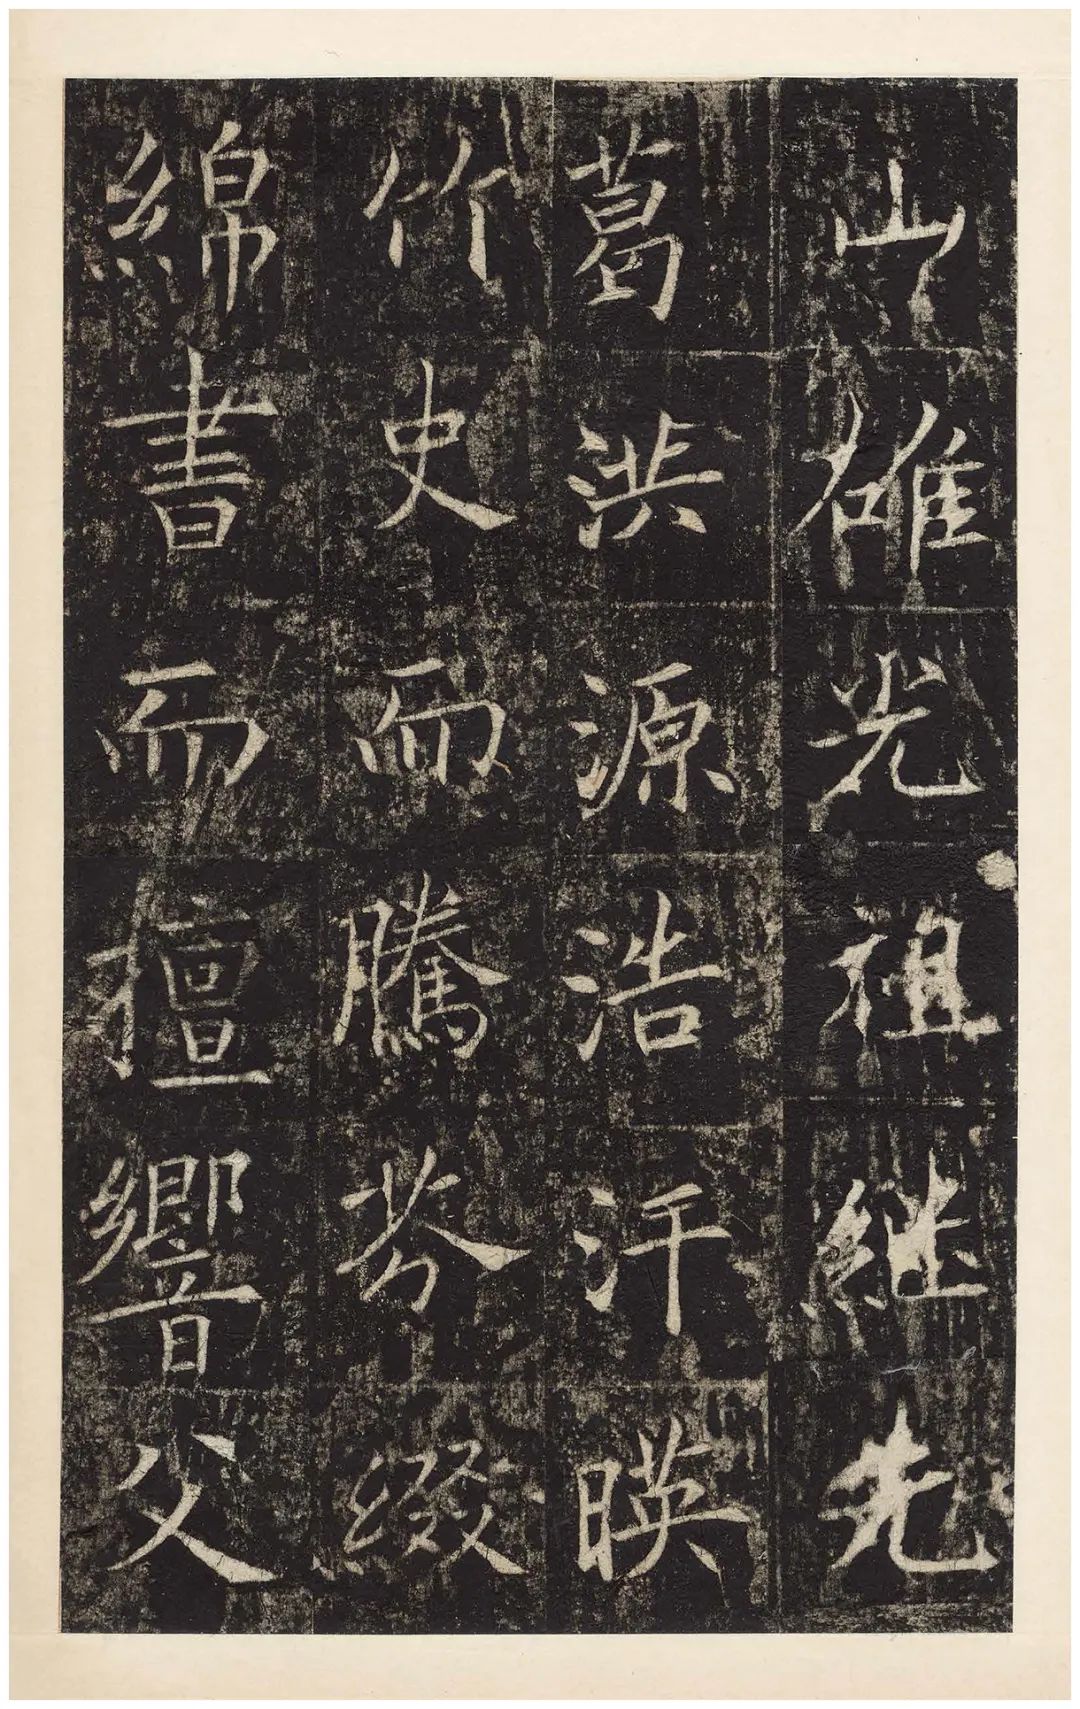 山雄光祖継先
葛洪源浩汗暎
竹史而騰芬綴
緜書而擅響父